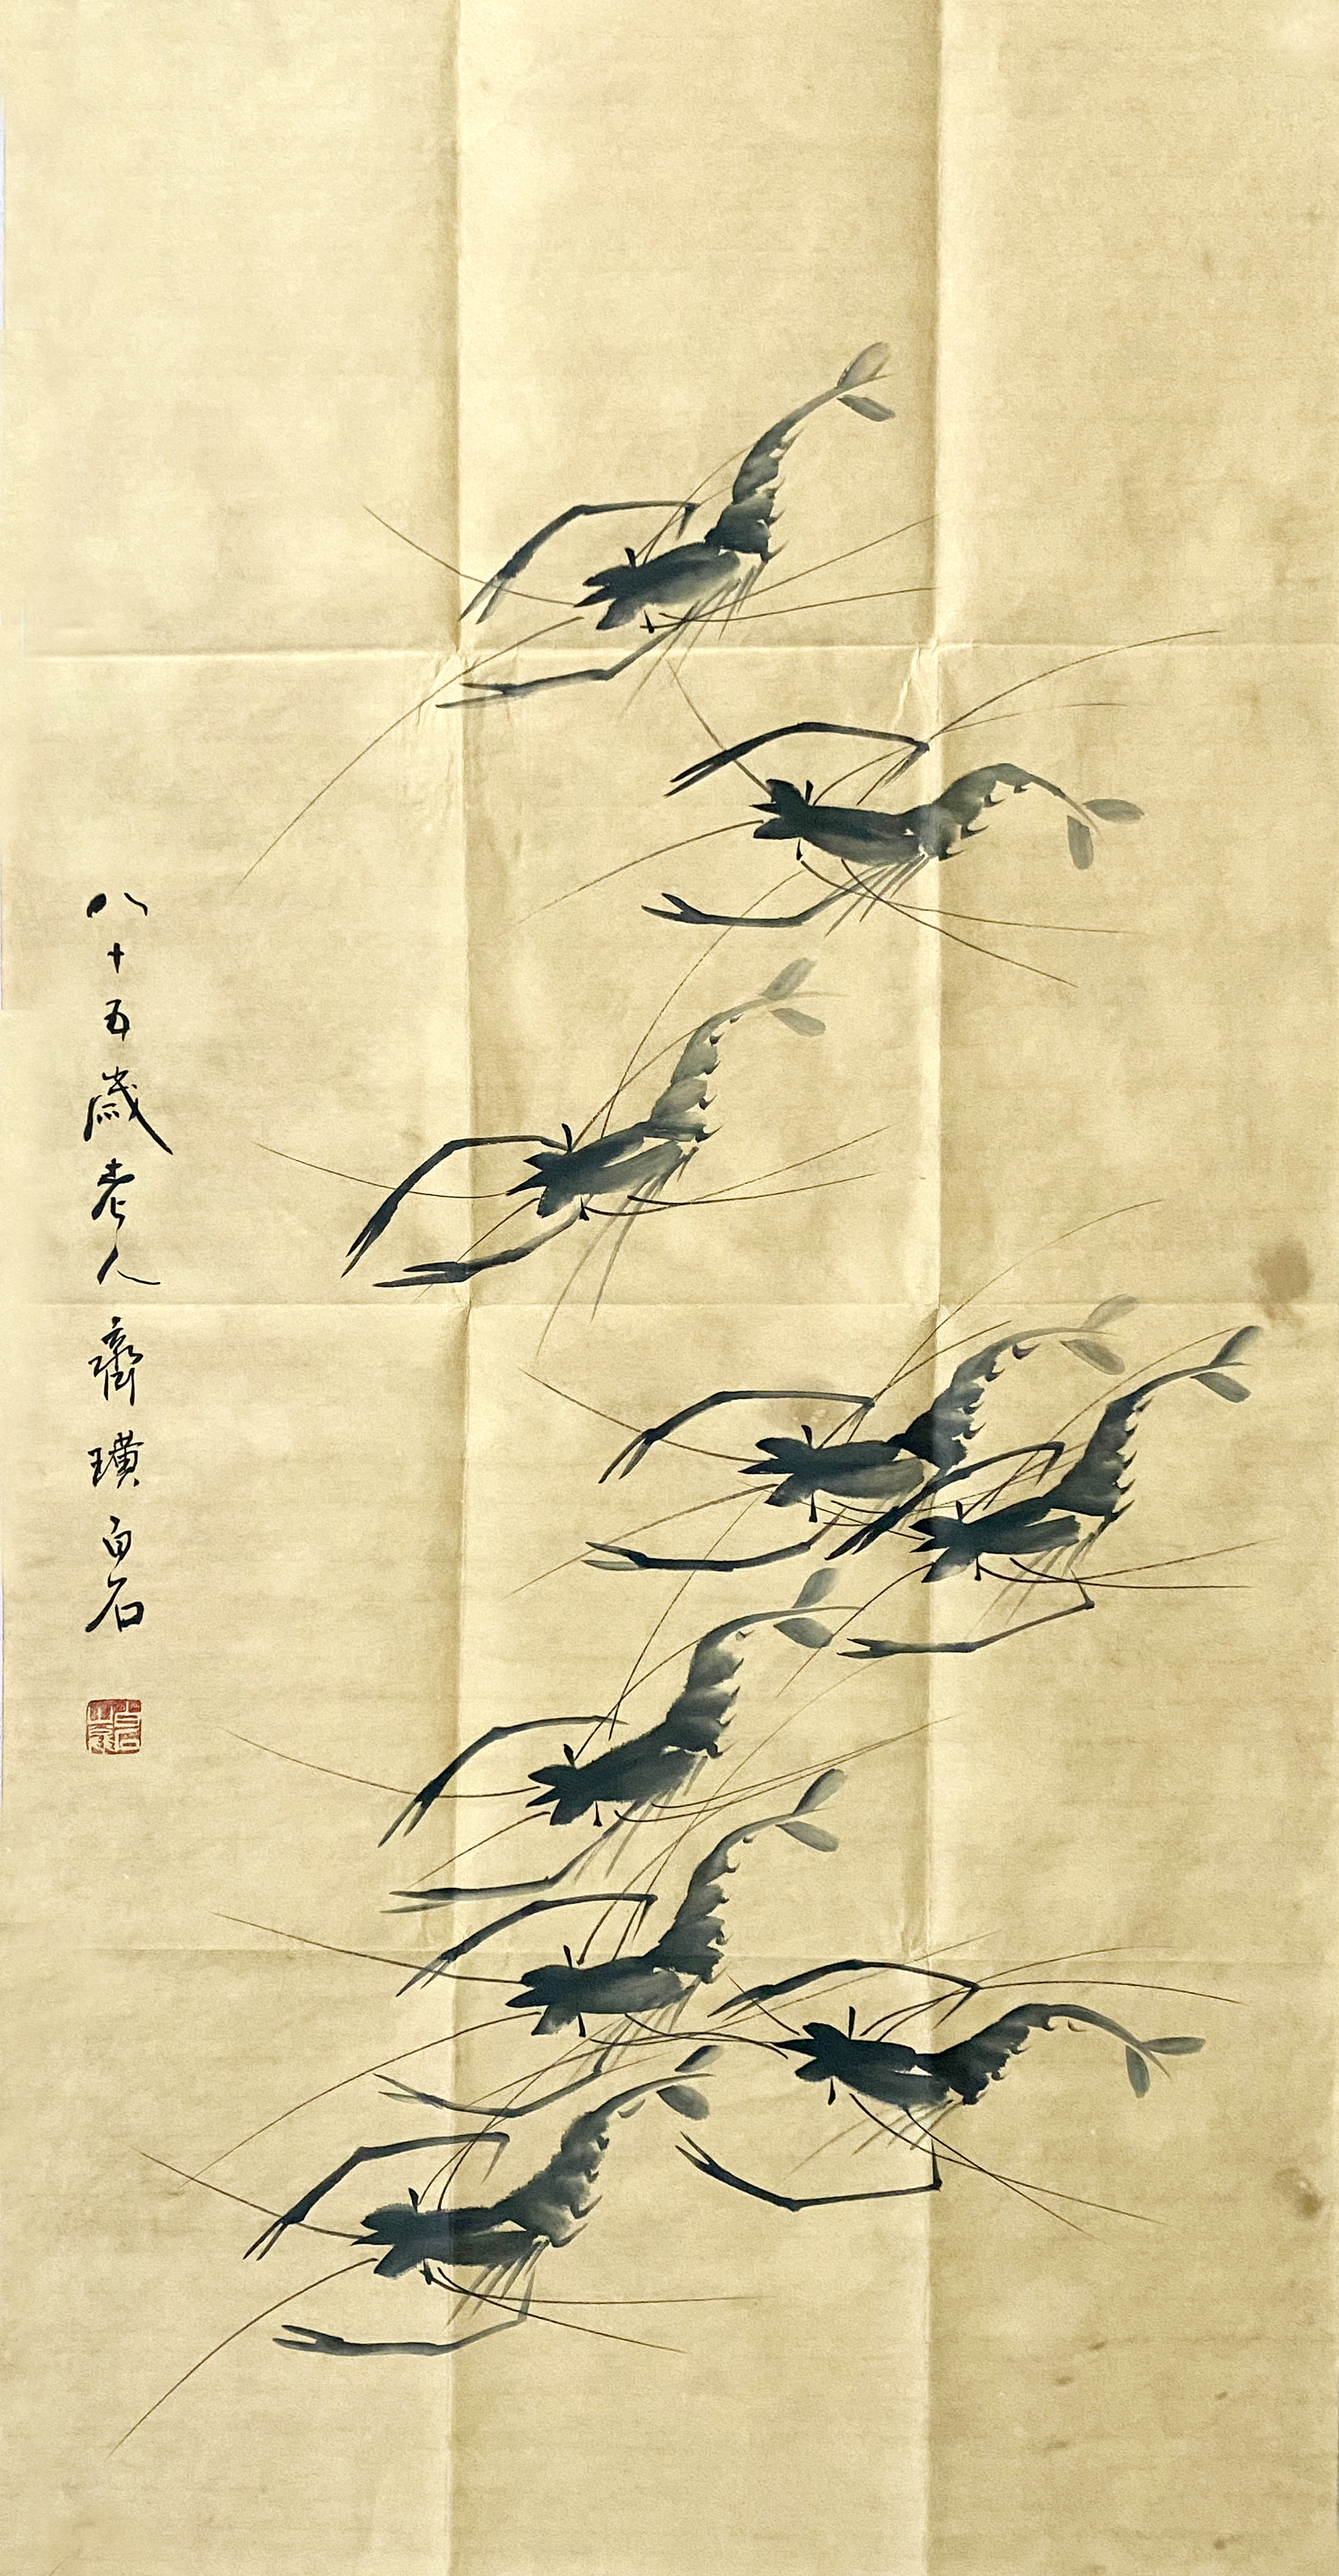 八十五歲老人齊璜白石